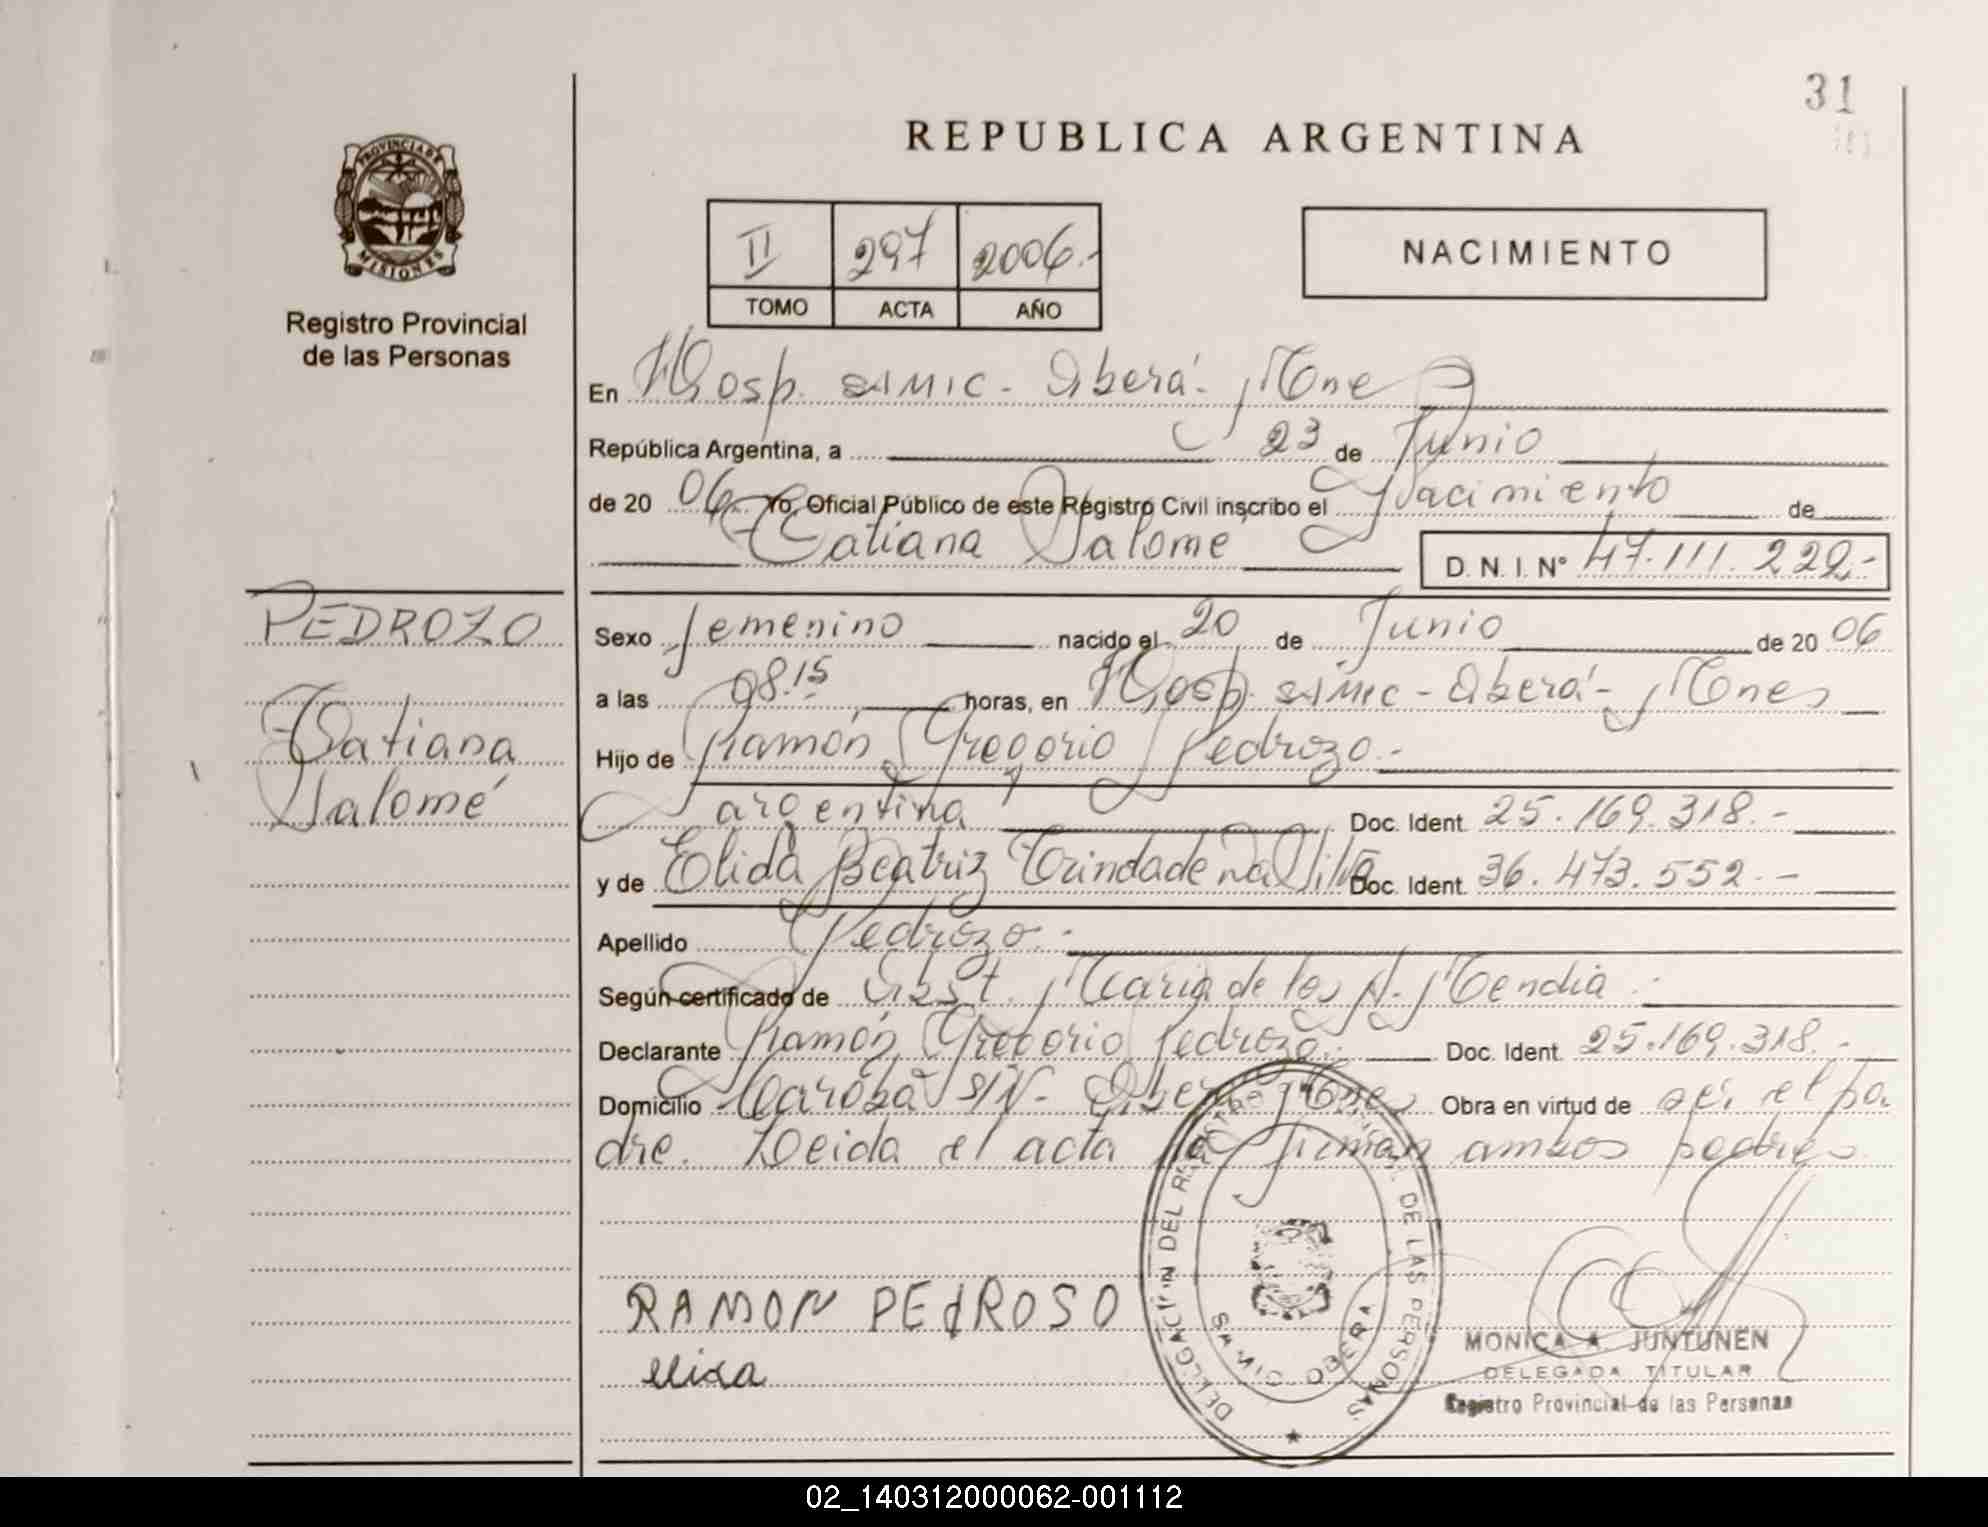 31
REPUBLICA ARGENTINA
PROVINCIA DE
MISIONES
Registro Provincial
de las Personas
II 297 2006.-
TOMO ACTA AÑO
NACIMIENTO
En Hosp. SAMIC - Oberá - Mnes
República Argentina, a 23 de Junio
de 20 06 Yo, Oficial Público de este Registro Civil inscribo el Nacimiento de
Tatiana Salome D. N. I. Nº 47.111.222.-
PEDROZO
Tatiana
Salomé
Sexo femenino nacido el 20 de Junio de 20 06
a las 08.15 horas, en Hosp. SAMIC - Oberá - Mnes
Hijo de Ramón Gregorio Pedrozo.-
argentina Doc. Ident. 25.169.318.-
y de Elida Beatriz Trindade Da Silva Doc. Ident. 36.473.552.-
Apellido Pedrozo.-
Según certificado de Obst. Maria de los A. Mendia.-
Declarante Ramón Gregorio Pedrozo.- Doc. Ident. 25.169.318.-
Domicilio S/N - Oberá Mnes Obra en virtud de ser el pa
dre. Leida el acta la firman ambos padres
RAMON PEdROSO
DELEGACION DEL REGISTRO DE LAS PERSONAS
SAMIC OBERA
MONICA A. JUNTUNEN
DELEGADA TITULAR
Registro Provincial de las Personas
02_140312000062-001112